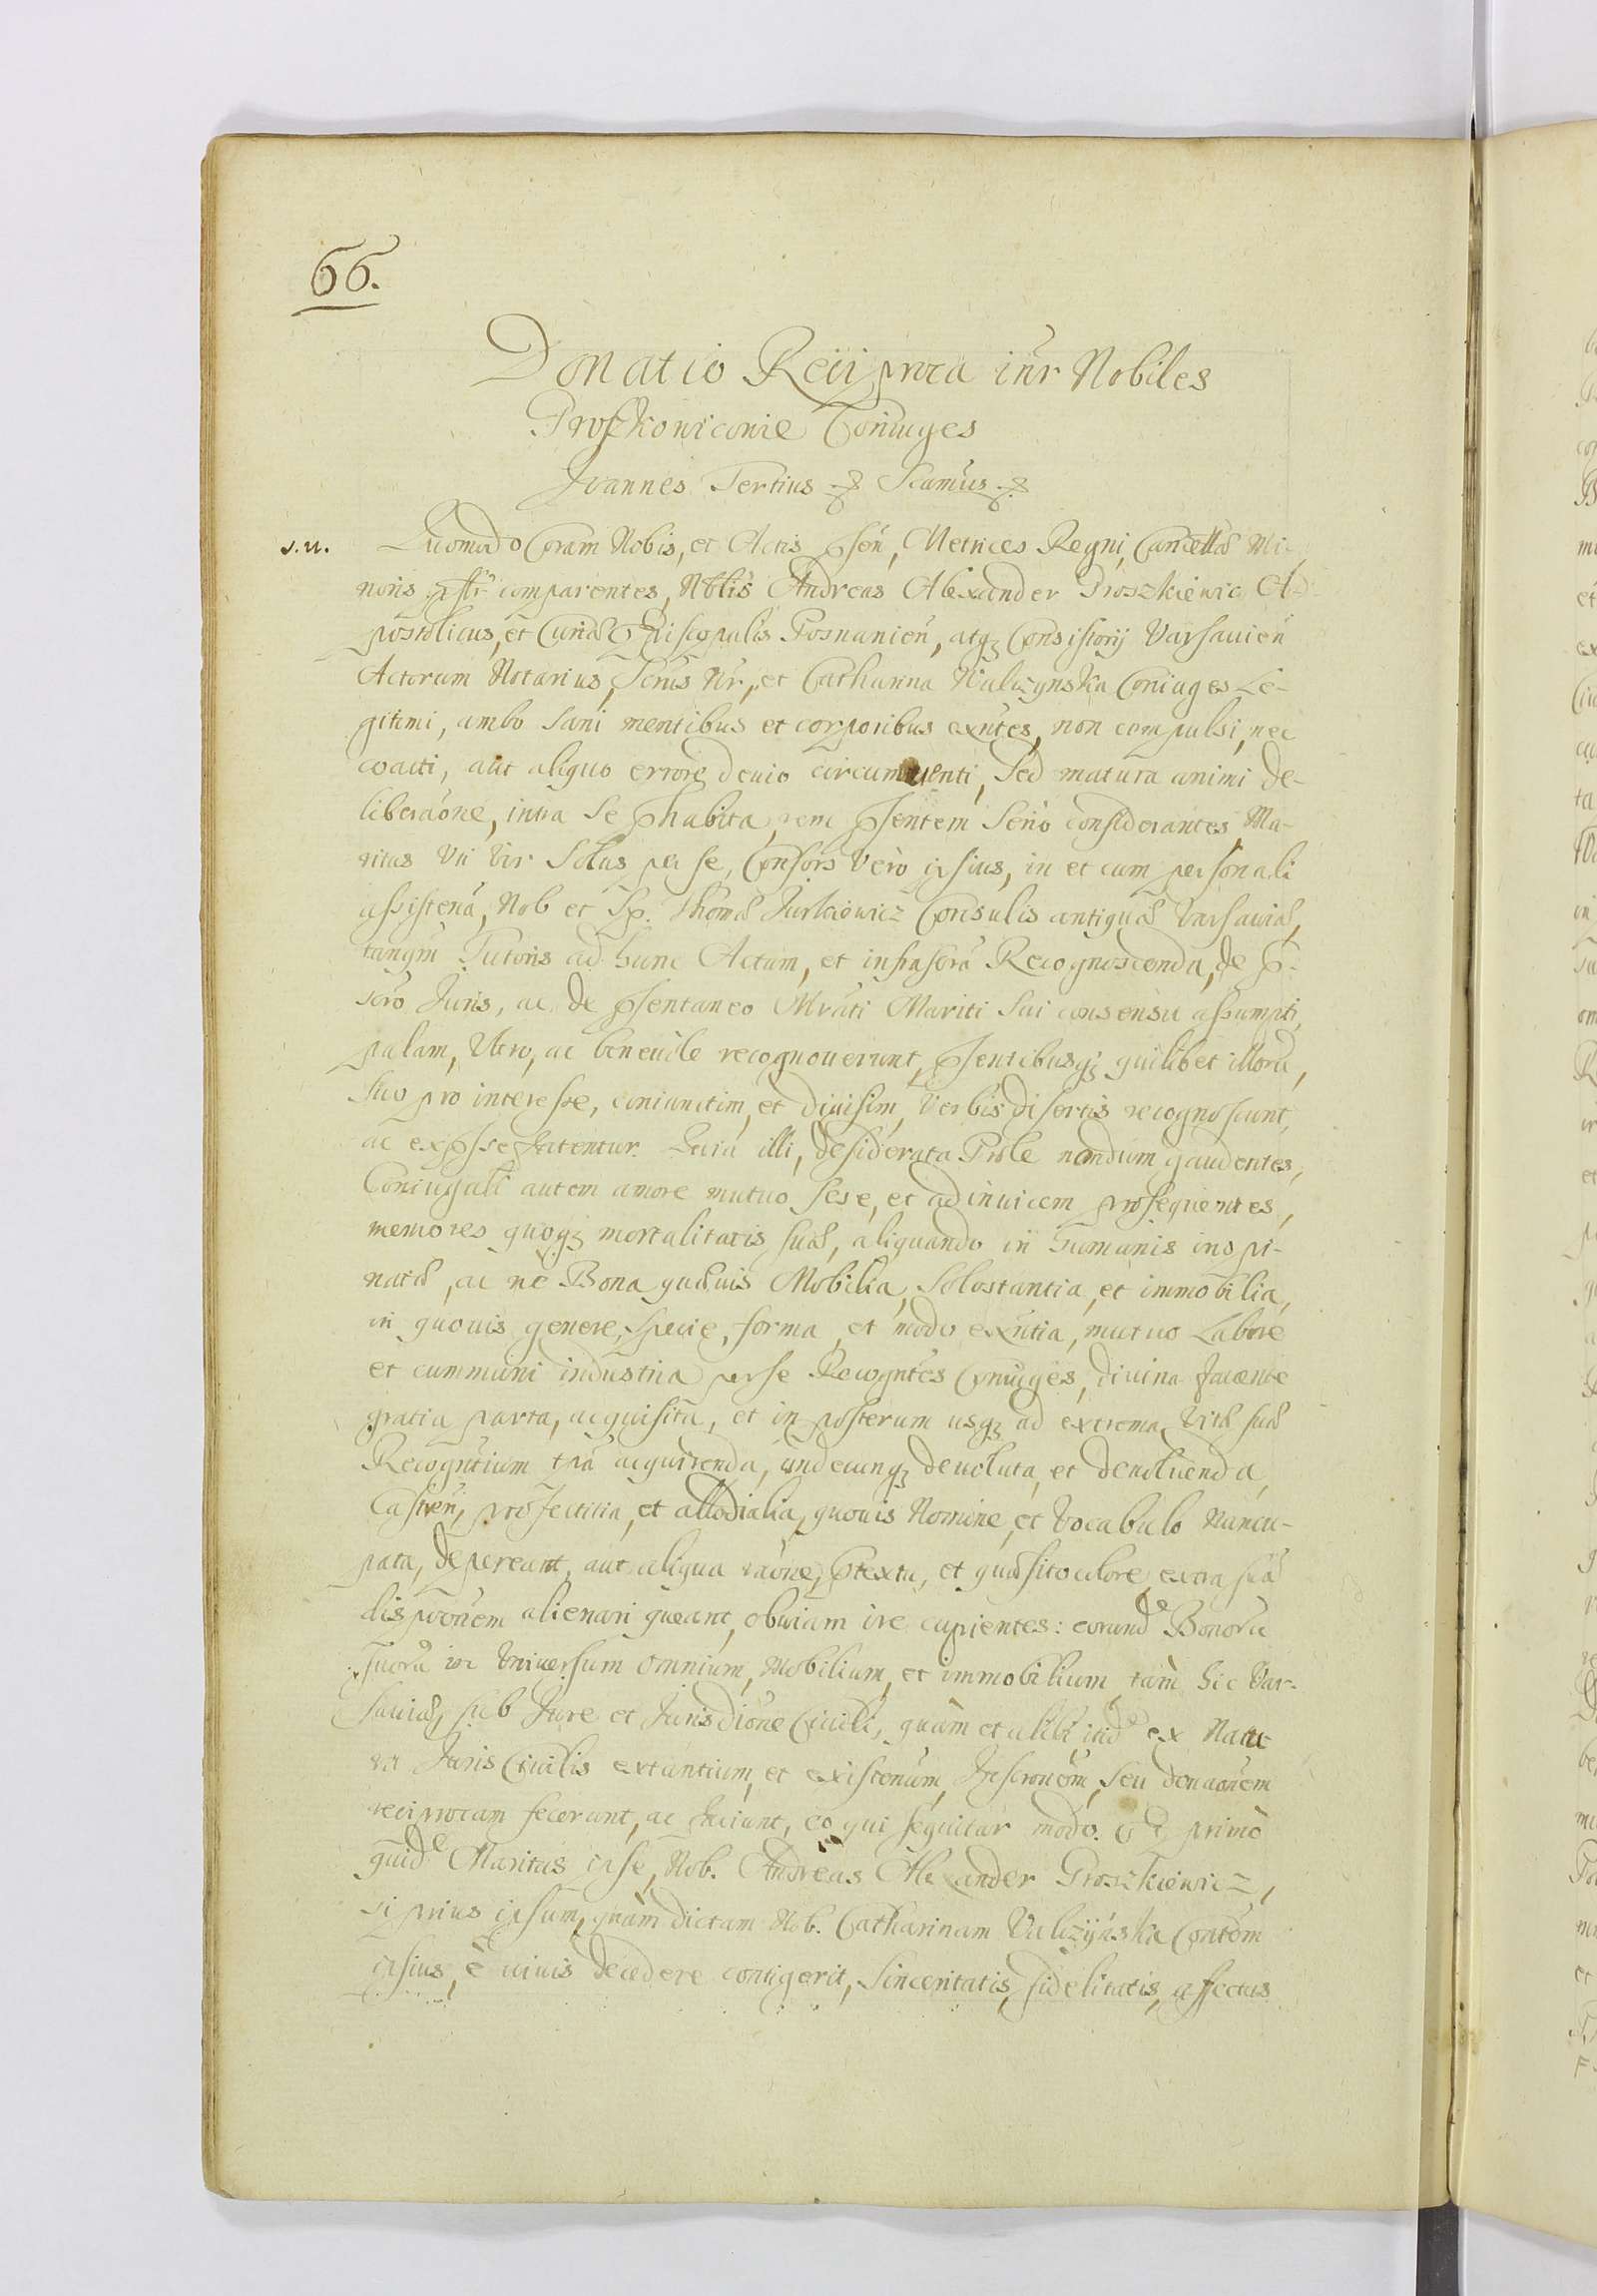 66.
Donatio Reciproca inr Nobiles
Proszkowicowie Coniuges
Joannes Tertius & Scamus &
s. n. Quomodo Coram Nobis, et Actis psen, Metrices Regni, Cancellae Mi-
noris psr comparentes, Nblis Andreas Alexander Proszkiewic A-
postolicus, et Curiae Episcopalis Posnanien, atq Consistorij Varsauien
Actorum Notarius, Scrius Nr, et Catharina Wulczynska Coniuges Le-
gitimi, ambo sani mentibus et corporibus exntes, non compulsi, nec
coacti, aut aliquo errore deuio circumuenti, sed matura animi de-
liberaone, intra se phabita, rem psentem serio considerantes, Ma-
ritus uti vir solus per se, Consors vero ipsius, in et cum personali
assistena, Nob et Sp. Thomae Jurkiewicz Consulis antiquae Varsauiae,
tanqm Tutoris ad hunc Actum, et infrascra Recognoscenda, de p-
scro Juris, ac de psentaneo Mrati Mariti sui consensu assumpti,
palam, Ultro, ac beneuole recognouerunt, psentibusq quilibet illoru,
suo pro interesse, coniunctim, et diuisim, verbis disertis recognoscunt,
ac expsse fatentur. Quia illi, desiderata Prole nondum gaudentes,
Coniugali autem amore mutuo sese, et adinuicem prosequentes,
memores quoq mortalitatis suae, aliquando in humanis inopi-
natae, ac ne Bona quaeuis Mobilia, Selostantia, et immobilia,
in quouis genere, specie, forma, et modo exntia, mutuo Labore
et cummuni industria per se Recogntes Coniuges, diuina fauente
gratia parta, acquisita, et in posterum usq ad extrema Vitae suae
Recogntium tpa acquirenda, undecunq deuoluta, et deuoluenda,
Castren, profectitia, et allodialia, quouis Nomine, et Vocabulo Nuncu-
pata, depereant, aut aliqua raone, ptextu, et quaesito colore extra sua
dispoonem alienari queant, obuiam ire cupientes: eorunde Bonoru
suoru in Vniuersum omnium, Mobilium, et immobilium tam hic Var-
sauiae, sub Jure et Jurisdione Ciuili, quam et alibi itide ex Natu-
ra Juris Ciuilis extantium, et existentium, Inscrionem, seu donaonem
reciprocam fecerunt, ac faciunt, eo qui sequitur modo. primo
quide Maritus ipse, Nob. Andreas Alexander Proszkiewicz,
si prius ipsum, quam dictam Nob. Catharinam Vulczynska Contem
ipsius, e uiuis decedere contigerit, Sinceritatis, fidelitatis, affectus